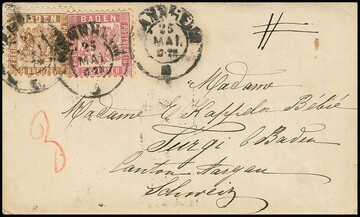 BADEN
BADEN
MANNHEIM
25
MAI
MANNHEIM
25
MAI
Madame
Madame E Kappeler Bébié
Turgi b/Baden
Canton Aargau
Schweiz